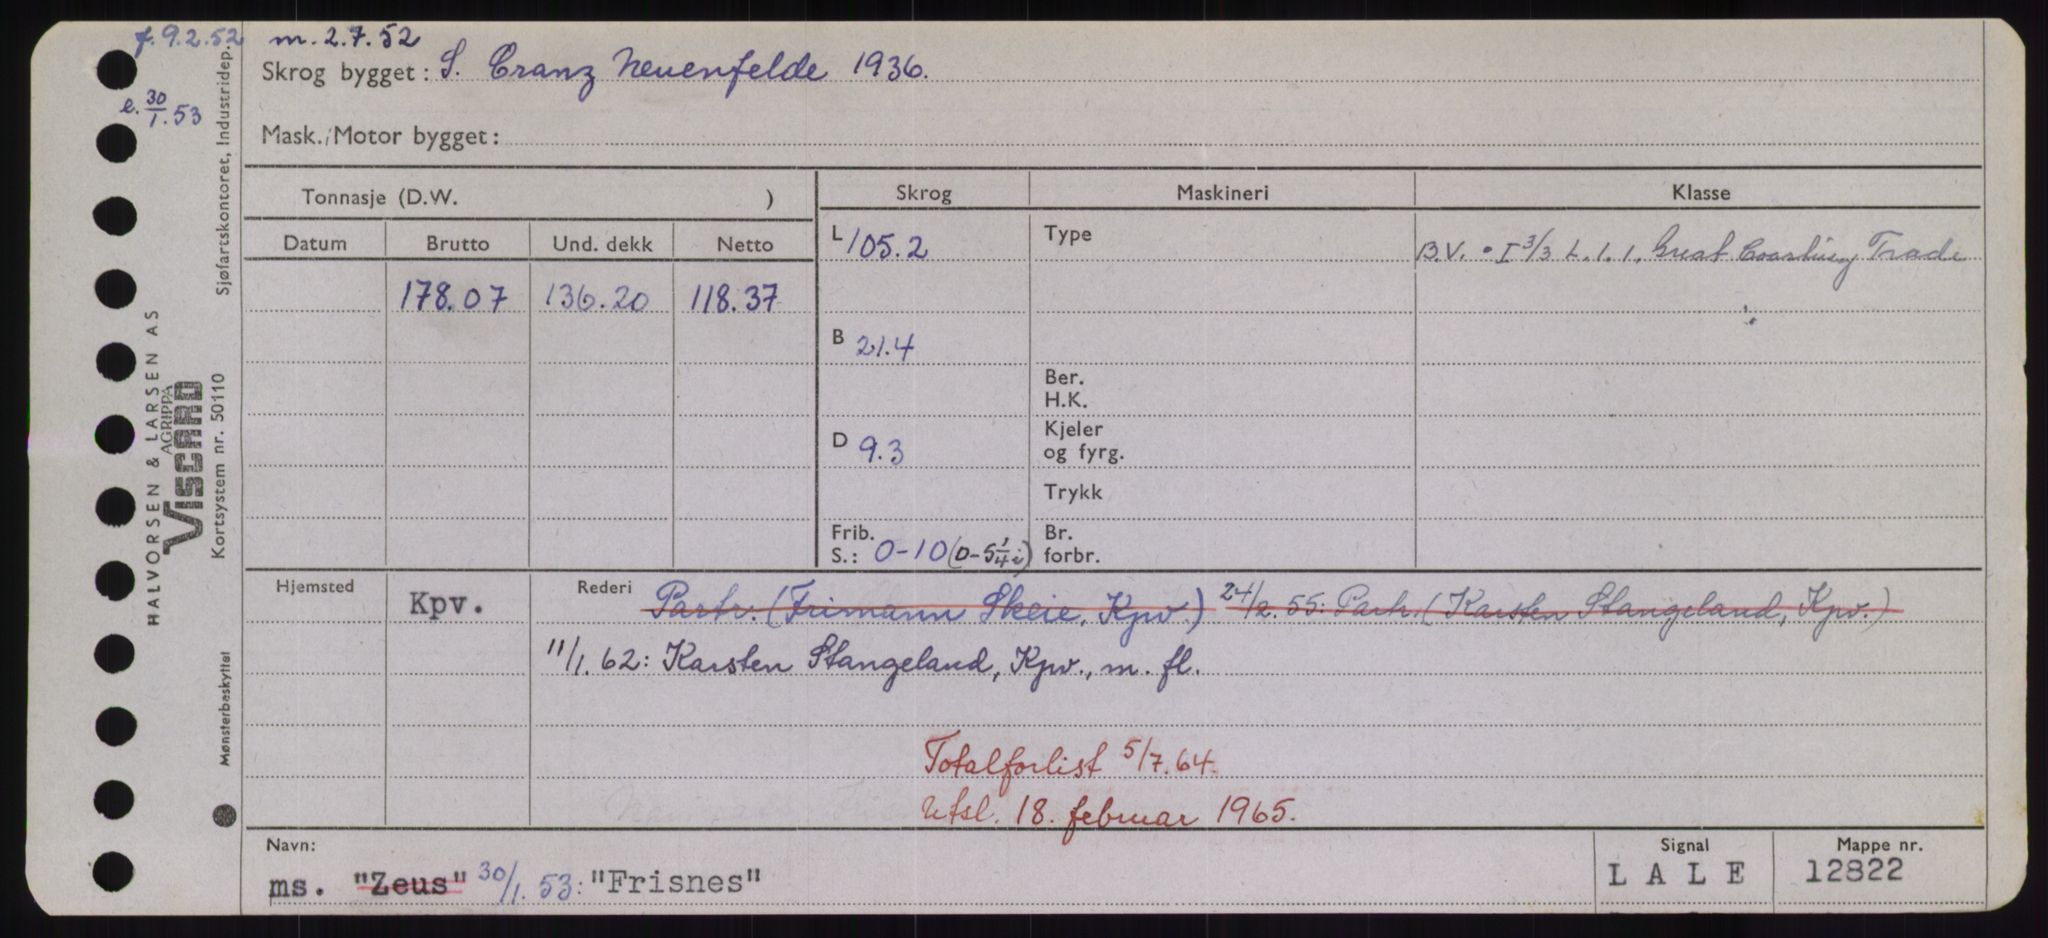 f. 9.2.52 m. 2.7.52
e. 30/1.53
Skrog bygget: S. Cranz Neuenfelde 1936.
Mask./Motor bygget:
Tonnasje (D.W. )
Skrog
Maskineri
Klasse
Datum Brutto Und. dekk Netto
178.07 136.20 118.37
L 105.2
Type
B.V. • I 3/3 L. 1. 1. Great Coasting Trade
B 21.4
Ber.
H.K.
D 9.3
Kjeler
og fyrg.
Trykk
Frib.
S.: 0-10 (0-5¼i)
Br.
forbr.
Hjemsted Kpv.
Rederi Partr. (Frimann Skeie, Kpv.) 24/2.55: Partr. (Karsten Stangeland, Kpv.)
11/1.62: Karsten Stangeland, Kpv., m. fl.
Totalforlist 5/7.64.
Utsl. 18. februar 1965.
Navn:
ms. "Zeus" 30/1.53: "Frisnes"
Signal
L A L E
Mappe nr.
12822
Sjøfartskontoret, Industridep.
HALVORSEN & LARSEN AS
AGRIPPA
VISCARD
Kortsystem nr. 50110
Mønsterbeskyttet